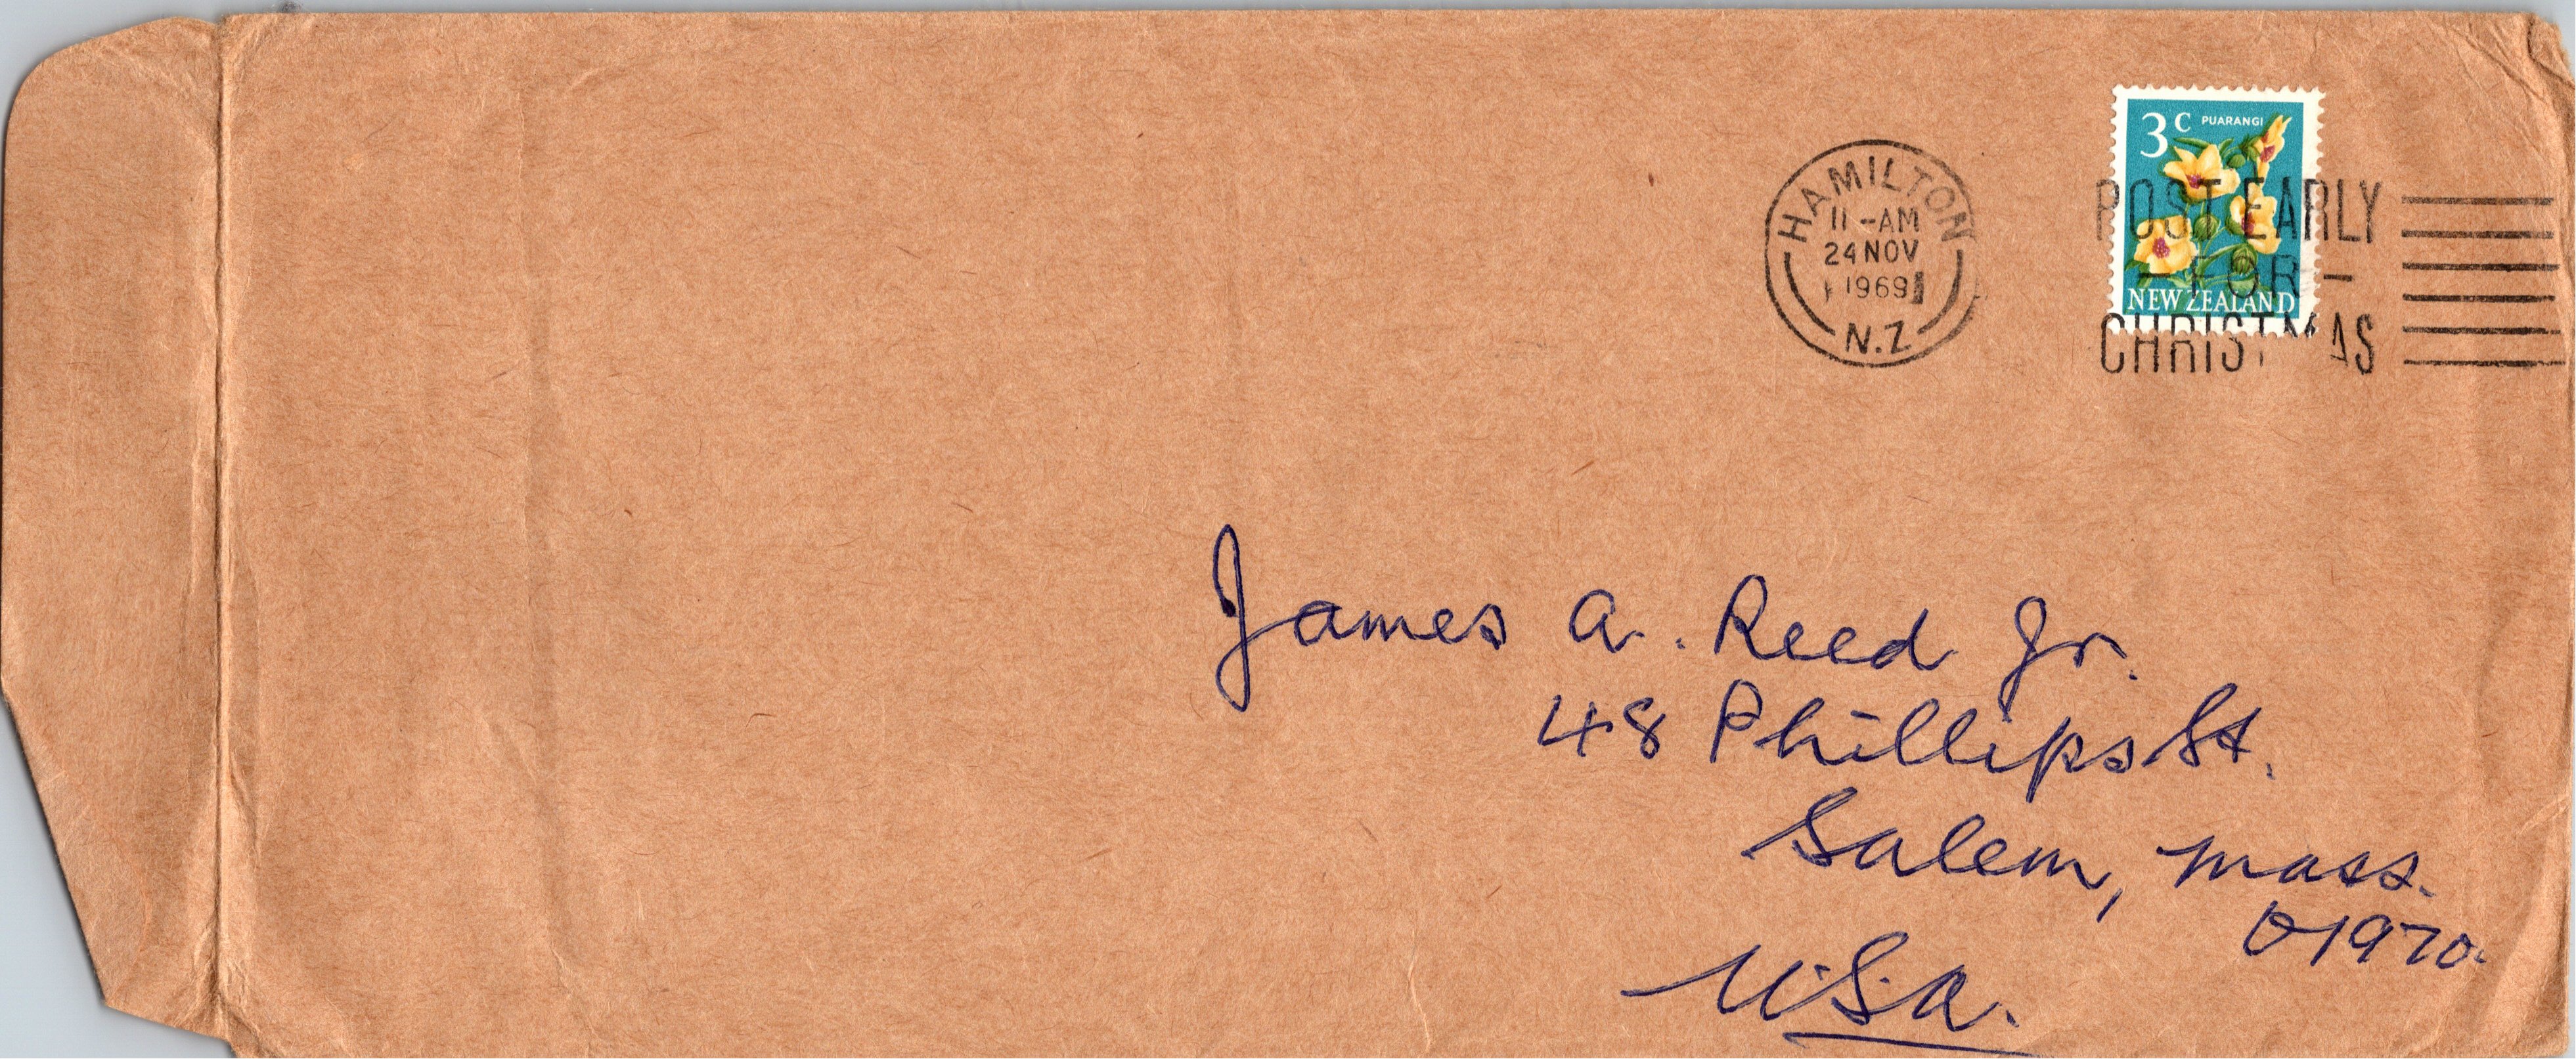 HAMILTON
11-AM
24 NOV
1969
N.Z
3c PUARANGI
NEW ZEALAND
POST EARLY
-FOR-
CHRISTMAS
James A. Reed Jr.
48 Phillips St.
Salem, Mass.
01970.
U.S.A.